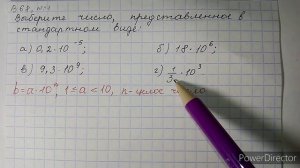 Выберите число, представленное в
стандартном виде.
а) 0,2·10⁻⁵; б) 18·10⁶;
в) 9,3·10⁹; г) 1/3·10³
b=a·10ⁿ, 1≤a<10, n-целое число
PowerDirector